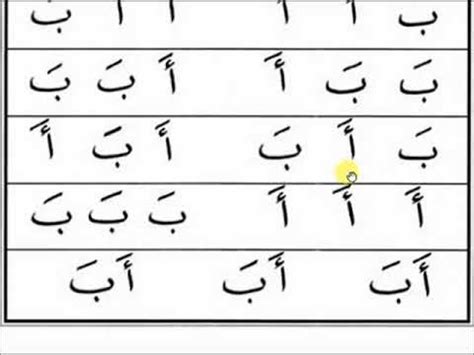 بَ أَ أَ أَ أَ بَ
بَ بَ أَ أَ بَ بَ
بَ أَ بَ أَ بَ أَ
أَ أَ أَ بَ بَ بَ
أَبَ أَبَ أَبَ